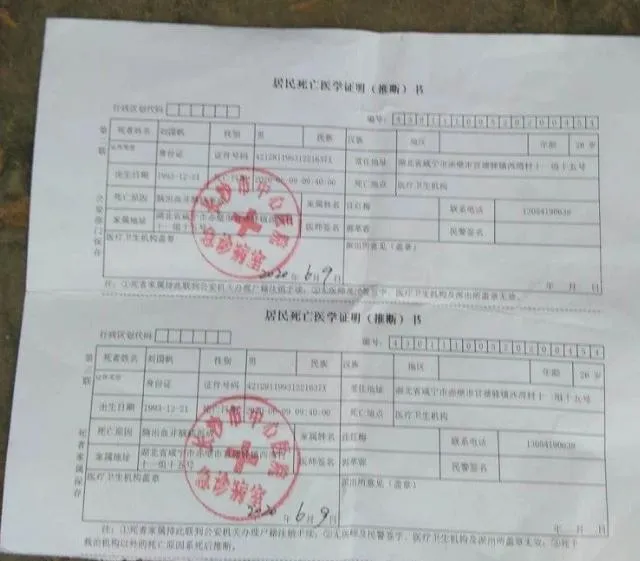 居民死亡医学证明（推断）书
行政区划代码
编号: 4301110052020 0454
死者姓名 刘国帆 性别 男 民族 汉族 地区 年龄 26 岁
身份证 证件号码 常住地址 湖北省咸宁市赤壁市官塘驿镇西湾村十一组十五号
出生日期 1993-12-21 2020-06-09 09:40:00 死亡地点 医疗卫生机构
死亡原因 脑出血开颅 家属姓名 联系电话
家属地址 湖北省咸宁市赤壁市官塘驿镇西湾村十一组十五号 医师签名 民警签名
医疗卫生机构盖章 派出所意见（盖章）
长沙市中心医院
急诊病室
2020 年 6 月 9 日
年 月 日
第二联
公安部门保存
注：①死者家属持此联到公安机关办理户籍注销手续；②无医师及民警签字、医疗卫生机构及派出所盖章无效。
居民死亡医学证明（推断）书
行政区划代码
编号: 4301110052020 0454
死者姓名 刘国帆 性别 男 民族 汉族 地区 年龄 26 岁
身份证 证件号码 常住地址 湖北省咸宁市赤壁市官塘驿镇西湾村十一组十五号
出生日期 1993-12-21 2020-06-09 09:40:00 死亡地点 医疗卫生机构
死亡原因 脑出血开颅 家属姓名 联系电话
家属地址 湖北省咸宁市赤壁市官塘驿镇西湾村十一组十五号 医师签名 民警签名
医疗卫生机构盖章 派出所意见（盖章）
长沙市中心医院
急诊病室
2020 年 6 月 9 日
年 月 日
第三联
死者家属保存
注：①死者家属持此联到公安机关办理户籍注销手续；②无医师及民警签字、医疗卫生机构及派出所盖章无效；③死于
救治机构以外的死亡原因系死后推断。